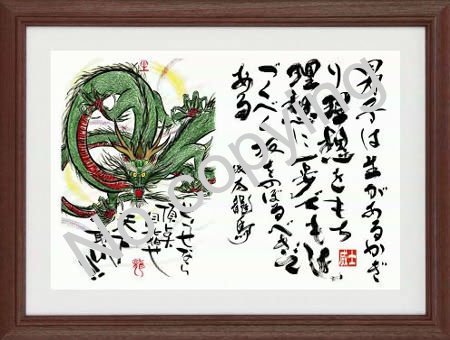 男子は生があるかぎ
り理想をもち
理想に一歩でも近
づくべく坂をのぼるべきで
ある
坂本龍馬
威士
頂点
目指せ
天下
No copying